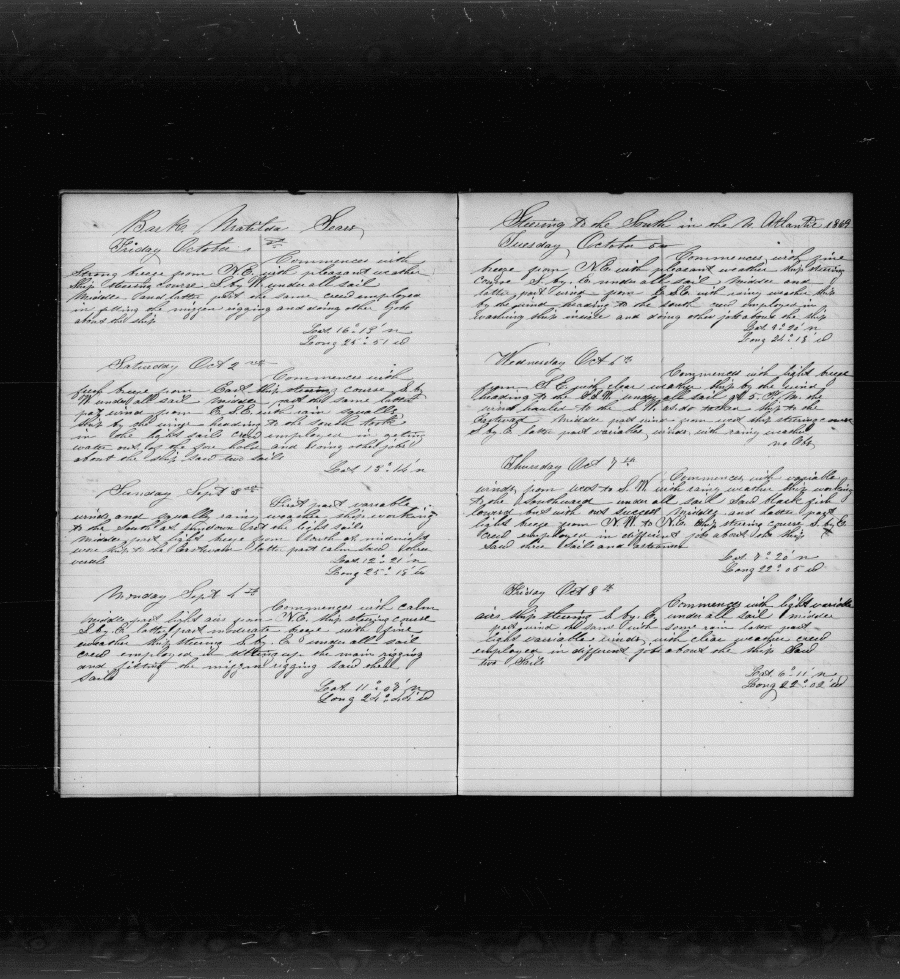 Bark Matilda Sears
Friday October 1st
Commences with
Strong breeze from N.E. with pleasant weather
Ship steering course S. by W. under all sail
Middle and latter part the same crew employed
in fitting the mizzen rigging and doing other jobs
about the ship
Lat 16° 19' N
Long 25° 51 W
Saturday Oct 2nd
Commences with
fresh breeze from East ship steering course S. by
W under all sail Middle part the same latter
part wind from E.S.E. with rain squalls
Ship by the wind heading to the South took
in the light sails crew employed in geting
water out of the fore hold and doing other jobs
about the ship saw two sails
Lat 13° 14' N
Sunday Sept 3rd
First part variable
winds and squally rainy weather ship working
to the South at sundown took the light sails
Middle part light breeze from South at midnight
wore ship to the Eastward latter part calm saw three
vessels
Lat 12° 21' N
Long 25° 18' W
Monday Sept 4th
Commences with calm
middle part light airs from N.E. ship steering course
S. by E. latter part moderate breeze with fine
weather ship steering S. by E. under all sail
crew employed in setting up the main rigging
and fitting the mizzen rigging saw three
sails
Lat 11° 03' N
Long 24° 44' W
Steering to the South in the N Atlantic 1869
Tuesday October 5th
Commences with fine
breeze from N.E. with pleasant weather ship steering
course S. by E. under all sail Middle and
latter part wind from E.S.E. with rainy weather ship
by the wind heading to the south crew employed in
washing ship inside and doing other jobs about the ship
Lat 9° 20' N
Long 24° 13' W
Wednesday Oct 6th
Commences with light breeze
from S.E. with clear weather ship by the wind
heading to the S.S.W. under all sail at 5. P.M. the
wind hauled to the S.W. tacked ship to the
Eastward Middle part wind from west ship steering course
S by E. latter part variable winds with rainy weather
no Obs
Thursday Oct 7th
Commences with variable
winds from West to S.W. with rainy weather ship working
to the Southward under all sail Saw black fish
lowered but with out success Middle and latter part
light breeze from N.W. to N.E. ship steering course S. by E.
crew employed in different jobs about the ship
Saw three sails and
Lat 7° 20' N
Long 22° 05 W
Friday Oct 8th
Commences with light variable
airs ship steering S. by E. under all sail middle
part wind the same with some rain latter part
light variable winds with clear weather crew
employed in different jobs about the ship Saw
two sails
Lat 6° 11' N
Long 22° 02' W